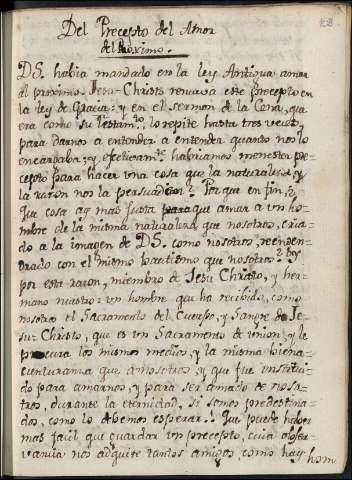 Del Precepto del Amor
del Próximo.
DS. habia mandado en la ley Antigua amar
al proximo. Jesu-Christo renueva este precepto en
la ley de Gracia: y en el sermon de la Cena, que
era como su testam.to, lo repite hasta tres veces,
para darnos a entender a entender quanto nos lo
encargaba; y efectivam.te habriamos menester pre=
cepto para hacer una cosa que la naturaleza y
la razon nos la persuadian? Por que en fin,
que cosa ay mas justa que amar a un ho=
mbre de la misma naturaleza que nosotros, cria=
do a la imagen de DS. como nosotros, reengen=
drado con el mismo bautismo que nosotros?
por esta razon, miembro de Jesu Christo, y her=
mano nuestro: un hombre que ha recibido, como
nosotros el Sacramento del Cuerpo, y Sangre de Je=
su-Christo, que es un Sacramento de union, y le
procura los mismos medios, y la misma biena=
venturanza que a nosotros, y que fue
do para amarnos, y para ser amado de noso=
tros, durante la eternidad, si somos predestina=
dos, como lo debemos esperar? Que puede haber
mas facil, que guardar un precepto, cuia obser=
vancia nos adquire tantos amigos como hay
hom